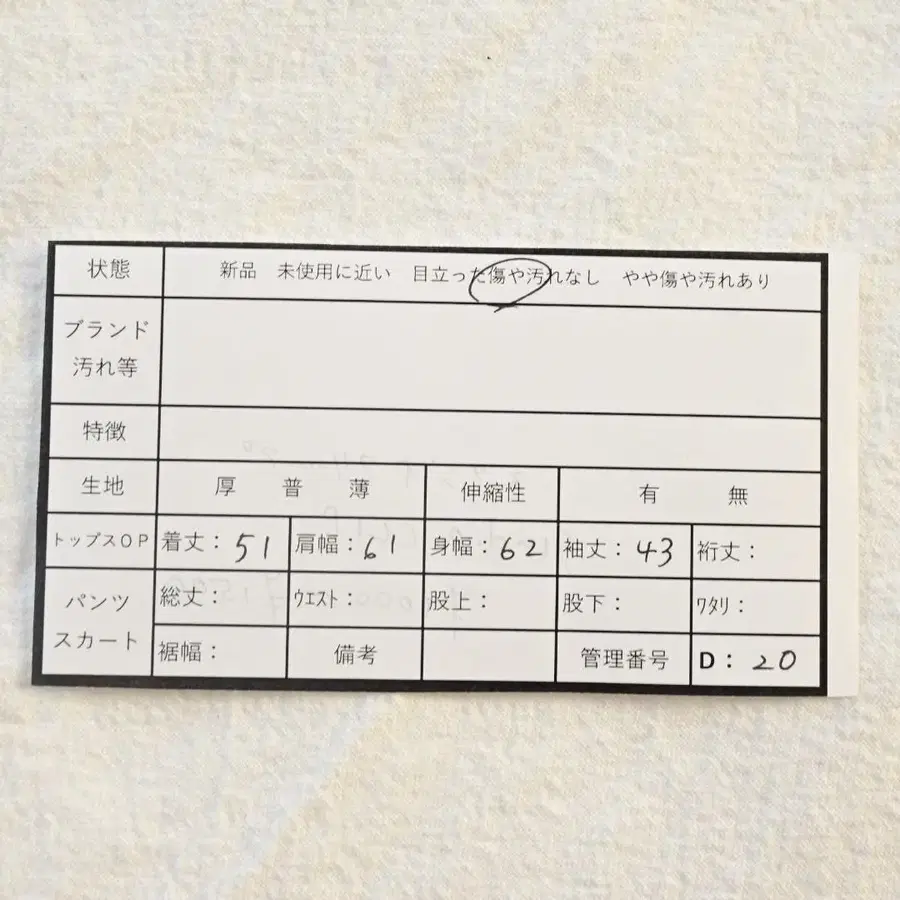 状態 新品 未使用に近い 目立った傷や汚れなし やや傷や汚れあり
ブランド
汚れ等
特徴
生地 厚 普 薄 伸縮性 有 無
トップスOP 着丈：51 肩幅：61 身幅：62 袖丈：43 裄丈：
パンツ
スカート
総丈： ウエスト： 股上： 股下： ワタリ：
裾幅： 備考 管理番号 D：20